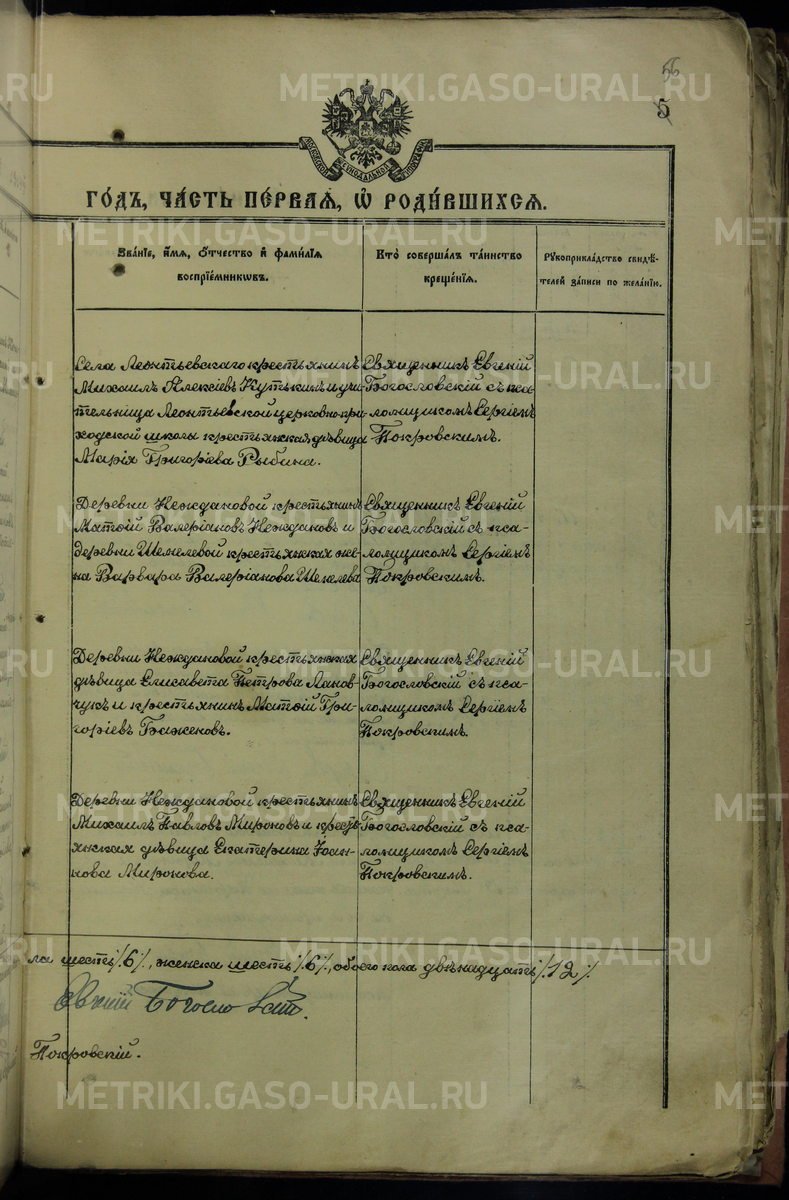 56
5
МОСКОВСКОЙ СѴНОДАЛЬНОЙ ТИПОГРАФІИ
ГО́ДЪ, ЧА́СТЬ ПЕ́РВАЯ, Ѡ҆ РОДИ́ВШИХСЯ.
Зва́нїе, и҆́мя, ѻ҆́тчество и҆ фами́лїя
воспрїе́мникωвъ.
Кто̀ соверша́лъ та́инство
креще́нїя.
Рꙋкоприкла́дство свидѣ́-
телей за́писи по жела́нїю.
Села Леонтьевскаго крестьянинъ
Михаилъ Алексіевъ Кутькинъ и учи-
тельница Леонтьевской церковно-при-
ходской школы крестьянская дѣвица
Марія Григоріева Рыбина.
Священникъ Евгеній
Богословскій съ пса-
ломщикомъ Сергіемъ
Покровскимъ.
Деревни Неждановой крестьянинъ
Матѳій Валеріановъ Неждановъ и
деревни Шмелевой крестьянская же-
на Варвара Валеріанова Шмелева
Священникъ Евгеній
Богословскій съ пса-
ломщикомъ Сергіемъ
Покровскимъ.
Деревни Неждановой крестьянская
дѣвица Елисавета Петрова
и крестьянинъ Матѳій Гри-
горіевъ Баженовъ.
Священникъ Евгеній
Богословскій съ пса-
ломщикомъ Сергіемъ
Покровскимъ.
Деревни Неждановой крестьянинъ
Михаилъ Павловъ Мироновъ и кресть-
янская дѣвица Екатерина Іоан-
нова Миронова.
Священникъ Евгеній
Богословскій съ пса-
ломщикомъ Сергіемъ
Покровскимъ.
ла шесть /.6/., женска шесть /.6/., обоего пола двѣнадцать /.12/.
Евгеній Богословскій.
Покровскій.
METRIKI.GASO-URAL.RU